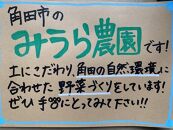 角田市の
みうら農園です!
土にこだわり、角田の自然環境に
合わせた野菜づくりをしています!
ぜひ手に とってみて下さい!!